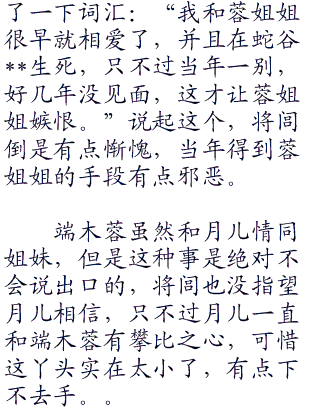 了一下词汇：“我和蓉姐姐
很早就相爱了，并且在蛇谷
**生死，只不过当年一别，
好几年没见面，这才让蓉姐
姐嫉恨。”说起这个，将闾
倒是有点惭愧，当年得到蓉
姐姐的手段有点邪恶。
端木蓉虽然和月儿情同
姐妹，但是这种事是绝对不
会说出口的，将闾也没指望
月儿相信，只不过月儿一直
和端木蓉有攀比之心，可惜
这丫头实在太小了，有点下
不去手。。